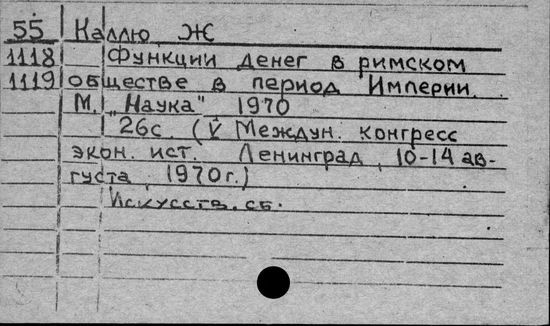 55 Каллю Ж
1118 Функции денег в римском
1119 обществе в период Империи.
М. "Наука" 1970
26с. (V Междун. конгресс
экон. ист. Ленинград, 10-14 ав-
густа, 1970г.)
Искусств. сб.